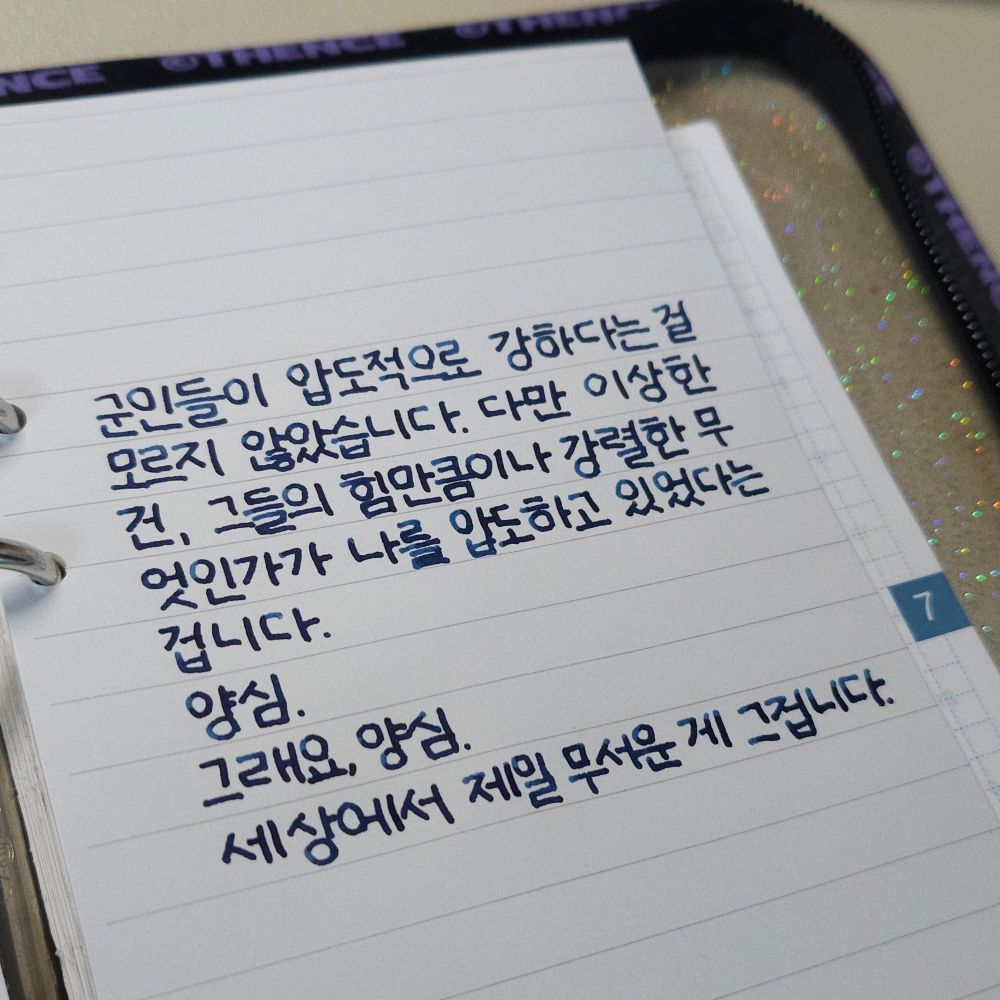 NCE ©THENCE ©THENCE
©THENCE
군인들이 압도적으로 강하다는걸
모르지 않았습니다. 다만 이상한
건, 그들의 힘만큼이나 강렬한 무
엇인가가 나를 압도하고 있었다는
겁니다.
양심.
그래요, 양심.
세상에서 제일 무서운 게 그겁니다.
7